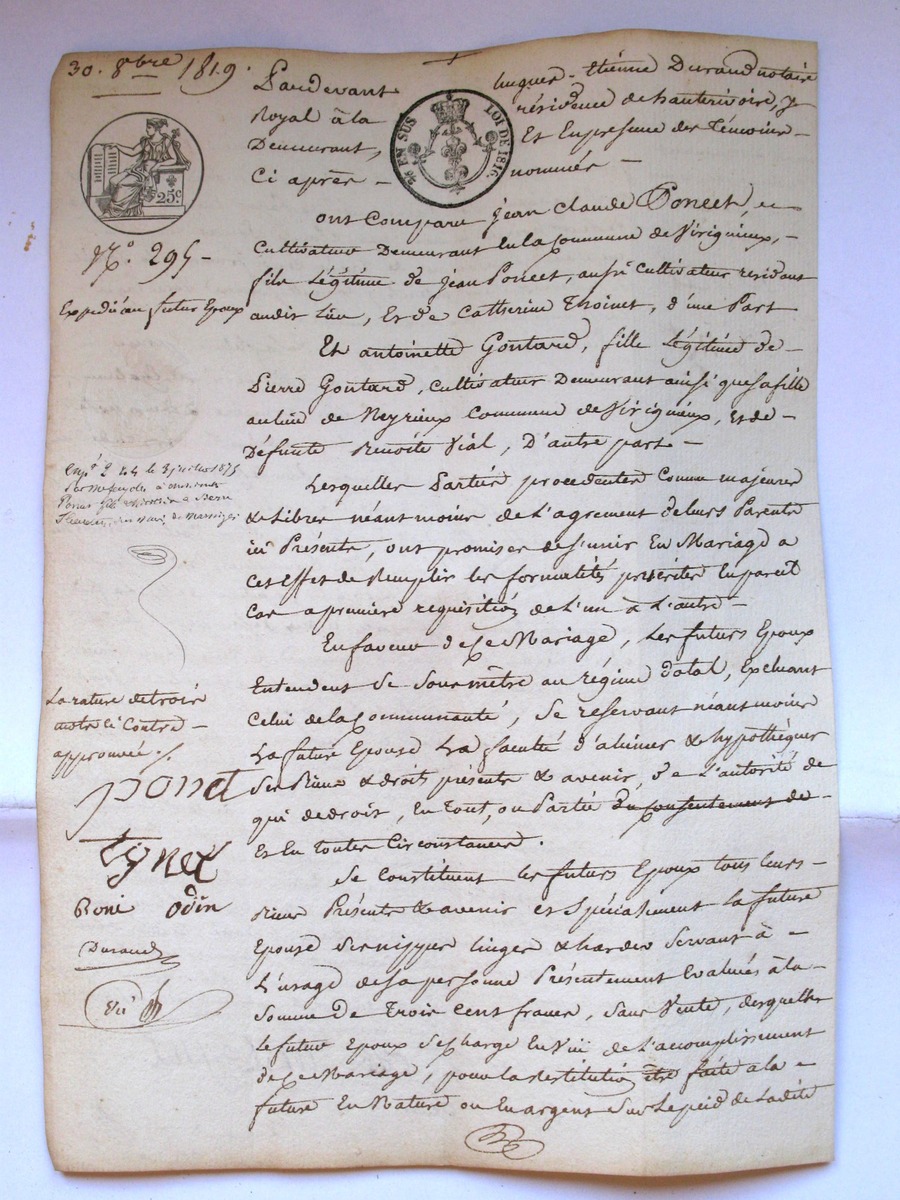 30. 8bre 1819.
Pardevant hugues-Etienne Durand notaire
Royal à la résidence de hauterivoire, y
Demeurant, Et En presence des Témoins
Ci après - nommés -
EN SUS LOI DE 1816.
25c
N.o 295 -
Expédié au futur Epoux
ont Comparu jean claude Poncet,
Cultivateur Demeurant En la Commune de Viriguieux, -
fils Légitime de jean Poncet, aussi Cultivateur residant
audit Lieu, Et de Catherine Thoinet, d'une Part
Et antoinette Gontard, fille Légitime de -
Pierre Gontard, Cultivateur Demeurant ainsi que sa fille
au lieu de Neyrieux Commune de Viriguieux, Et de -
Défunte Benoite Vial, D'autre part -
le 3 juillet 1875
Lesquelles Parties procedentes Comme majeures
& Libres néantmoins de L'agrément de leurs Parents
ici Présents, ont promises de s'unir En Mariage a
cet Effet de Remplir les formalités presérites En pareil
cas a première requisition de L'un à L'autre -
En faveur de Ce Mariage, Les futurs Epoux
Entendent Se Soumêtre au régime dotal, Excluant
Celui de la Communauté, Se réservant néantmoins
La future Epouse La faculté d'aliener & hypothéquer
Ses Biens & droits présents & avenir, de L'autorité de
qui de droit, En Tout, ou Partie du consentement de -
Et En Toutes Circonstances.
La rature de trois
mots Ci Contre -
approuvée ./.
pond
Tynet
Roni odin
Durand
Se Constituent les futurs Epoux tous leurs -
Biens Présents & avenir et Spécialement la future
Epouse Ses nippes linges & hardes Servant à -
L'usage de sa personne Présentement Evalués à la -
Somme De Trois Cent francs, Sans Vente, desquelles
Le futur Epoux Se Charge En Vüe de L'accomplissement
de Ce Mariage, pour la Restitution être faite a la -
future En Nature ou En argent Sur Le pied de Ladite